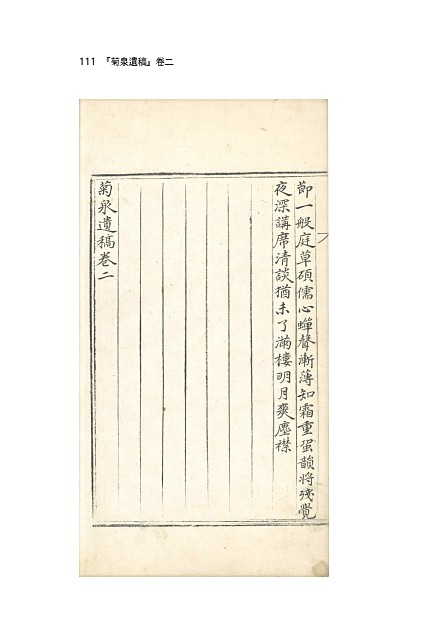 111 『菊泉遺稿』卷二
節一般庭草碩儒心蟬聲漸薄知霜重蛩韻將殘覺
夜深講席清談猶未了滿樓明月爽塵襟
菊泉遺稿卷二